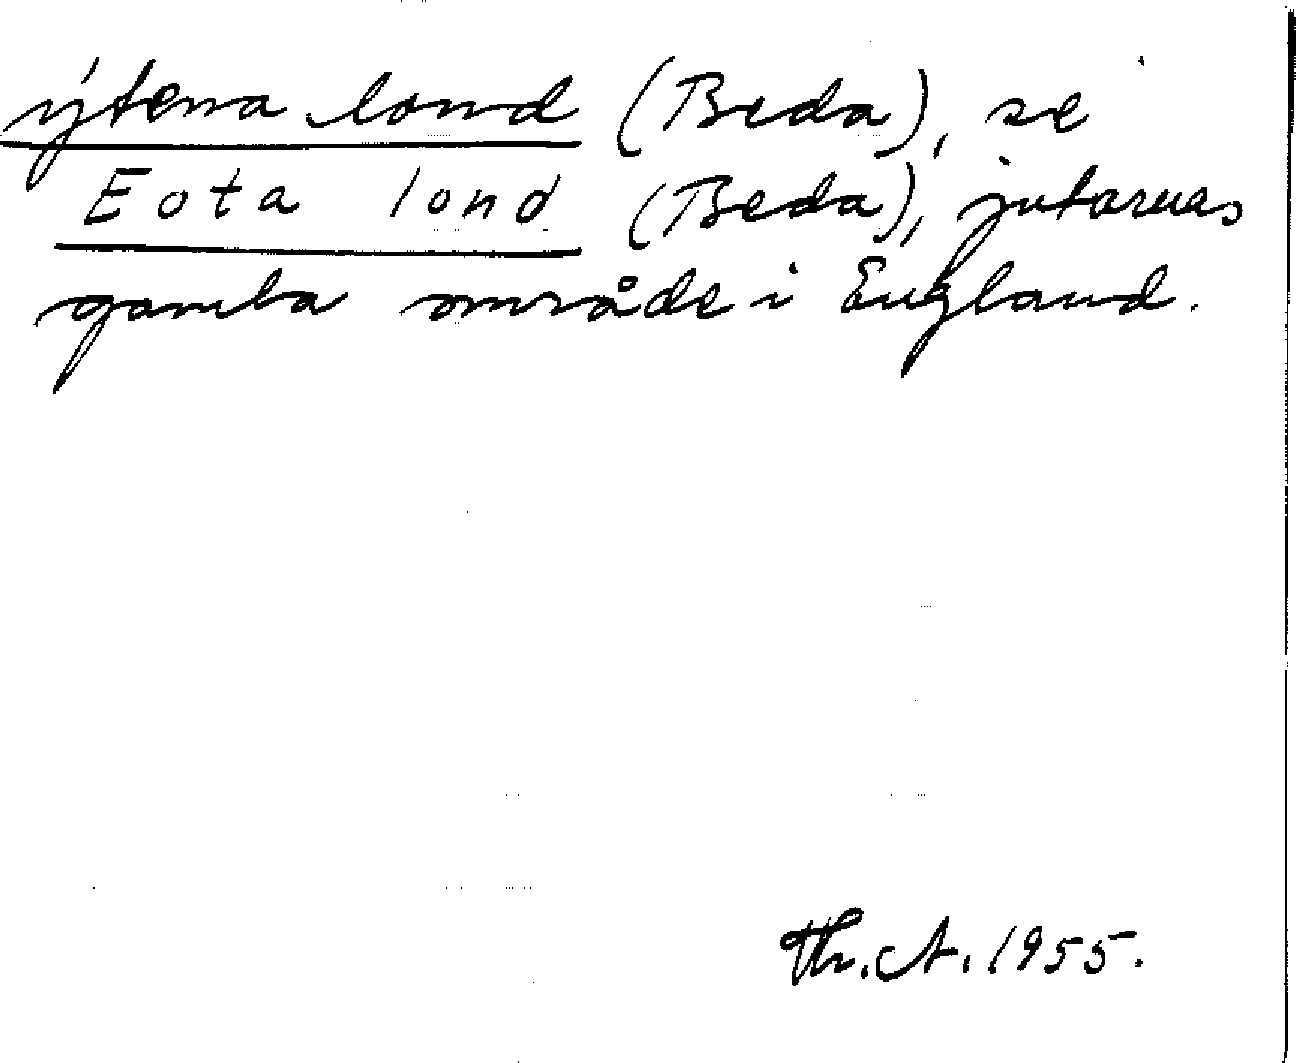 ýtena lond (Beda), se
Eota lond (Beda), jutarnas
gamla område i England.
Th. A. 1955.